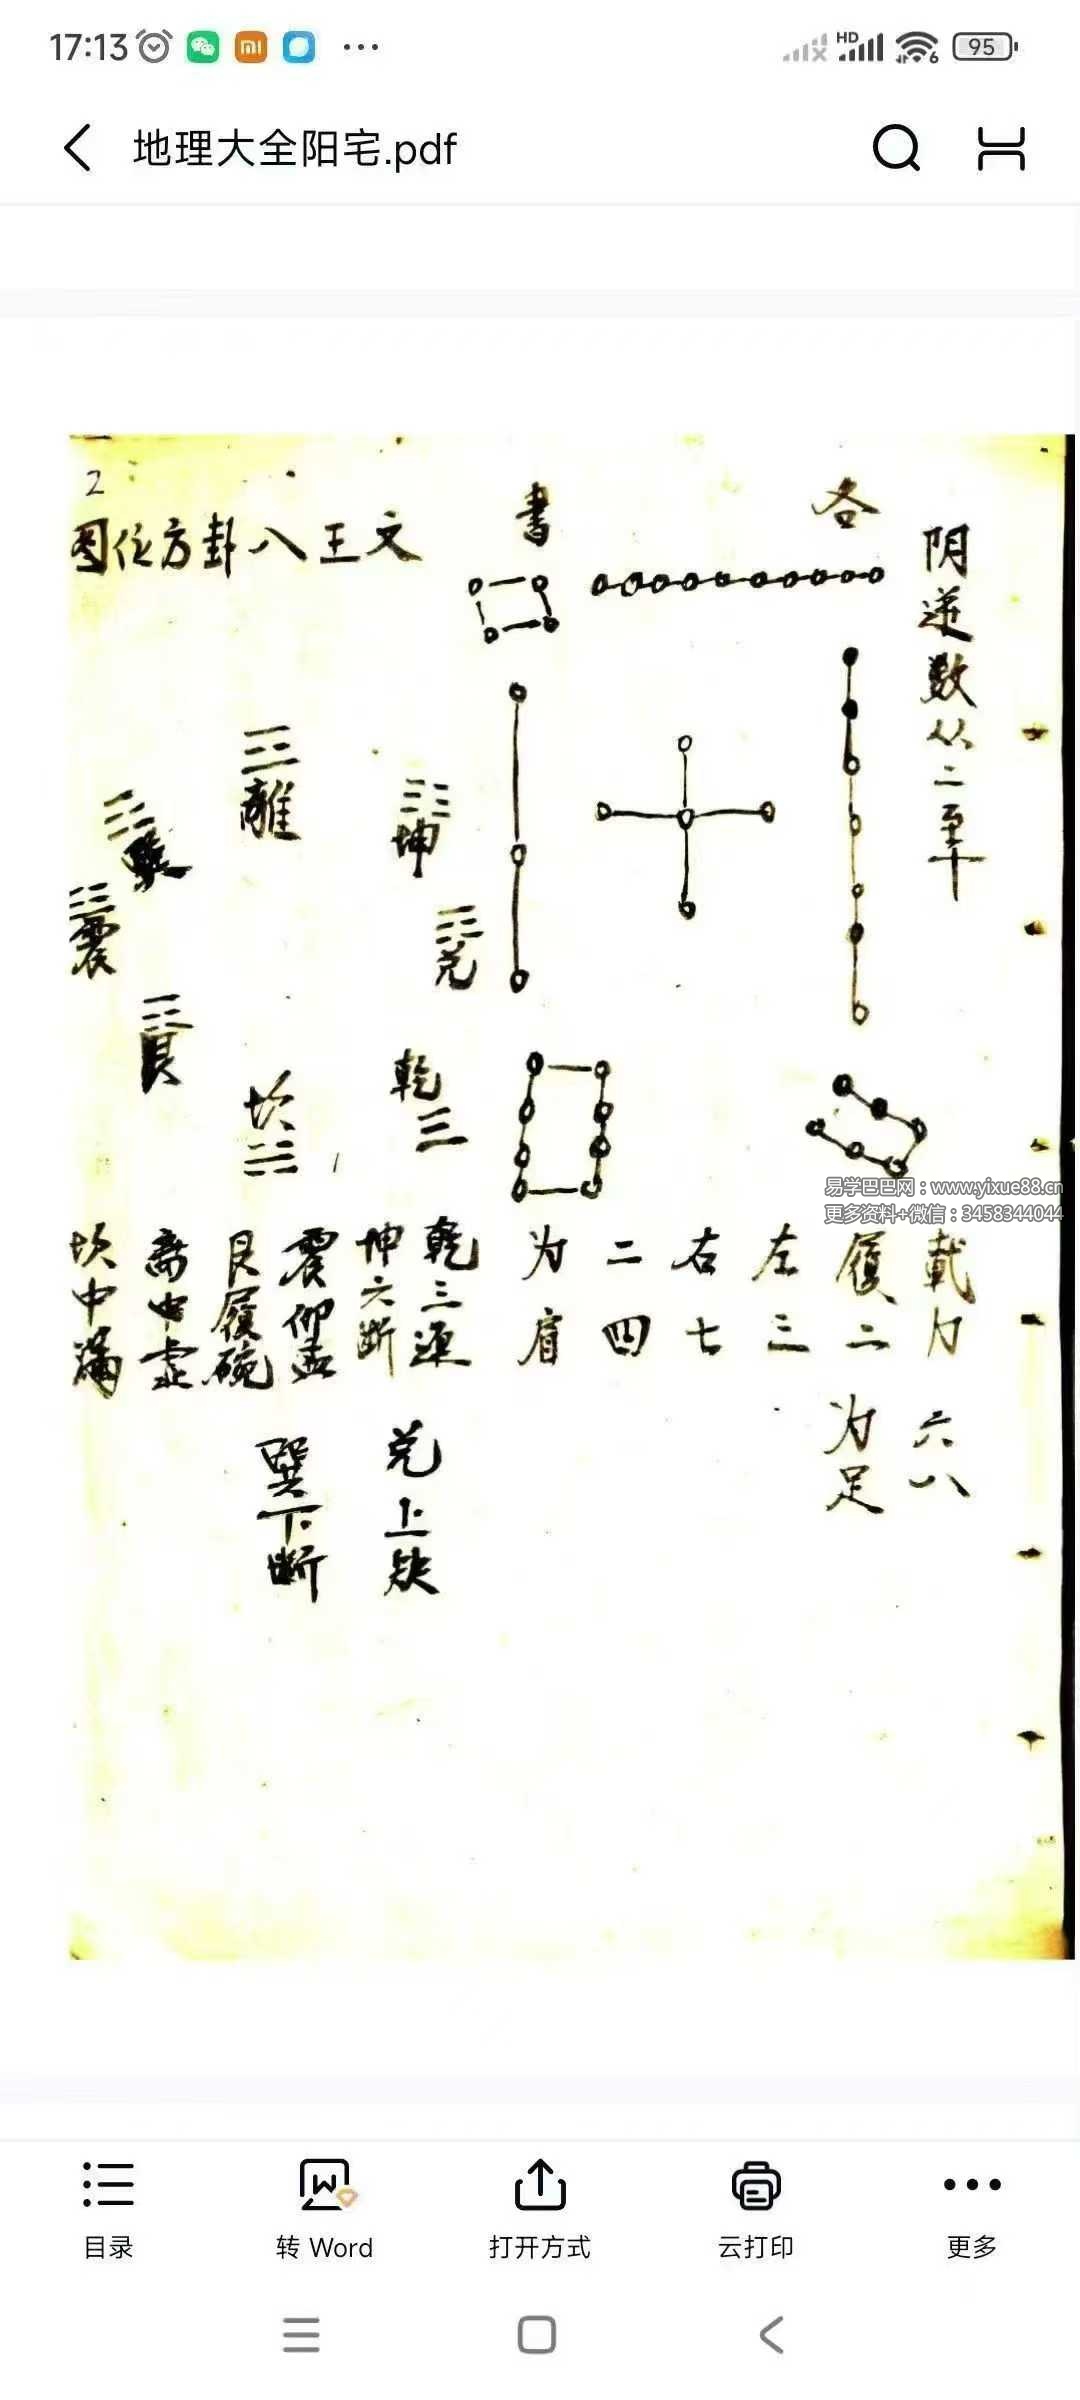 17:13
HD
6
95
地理大全阳宅.pdf
2
阴逆数从二至十
各
書
文王八卦方位图
離
坤
巽
震
兑
艮
乾
坎
易学巴巴网：www.yixue88.cn
更多资料+微信：3458344044
載力
履二
左三
右七
二四
为肩
六八
为足
乾三連
坤六断
震仰盂
艮履碗
离中虚
坎中滿
兑上缺
巽下断
目录
转 Word
打开方式
云打印
更多